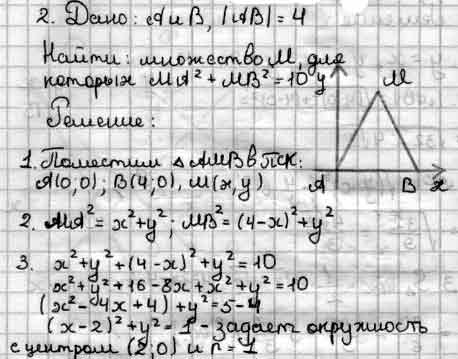 2. Дано: A и B, |AB| = 4
Найти: множество M, для
которых MA² + MB² = 10
Решение:
y
M
A
B
x
1. Поместим △AMB в ПСК:
A(0;0); B(4;0), M(x,y)
2. MA² = x²+y²; MB² = (4-x)²+y²
3. x²+y²+(4-x)²+y² = 10
x²+y²+16-8x+x²+y² = 10
(x²-4x+4)+y² = 5-4
(x-2)²+y² = 1 - задает окружность
с центром (2;0) и r = 1